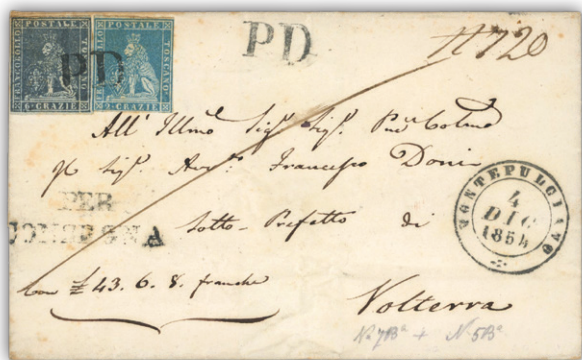 FRANCOBOLLO POSTALE TOSCANO
GRAZIE
FRANCOBOLLO POSTALE TOSCANO
2 GRAZIE
PD
PD
N 720
All' Illmo Sigr. Sigr.
Sigr. Francesco Doni
PER
CONSEGNA
Sotto-Prefetto di
MONTEPULCIANO
4
DIC
1854
con £ 43. 6. 8. franche
Volterra